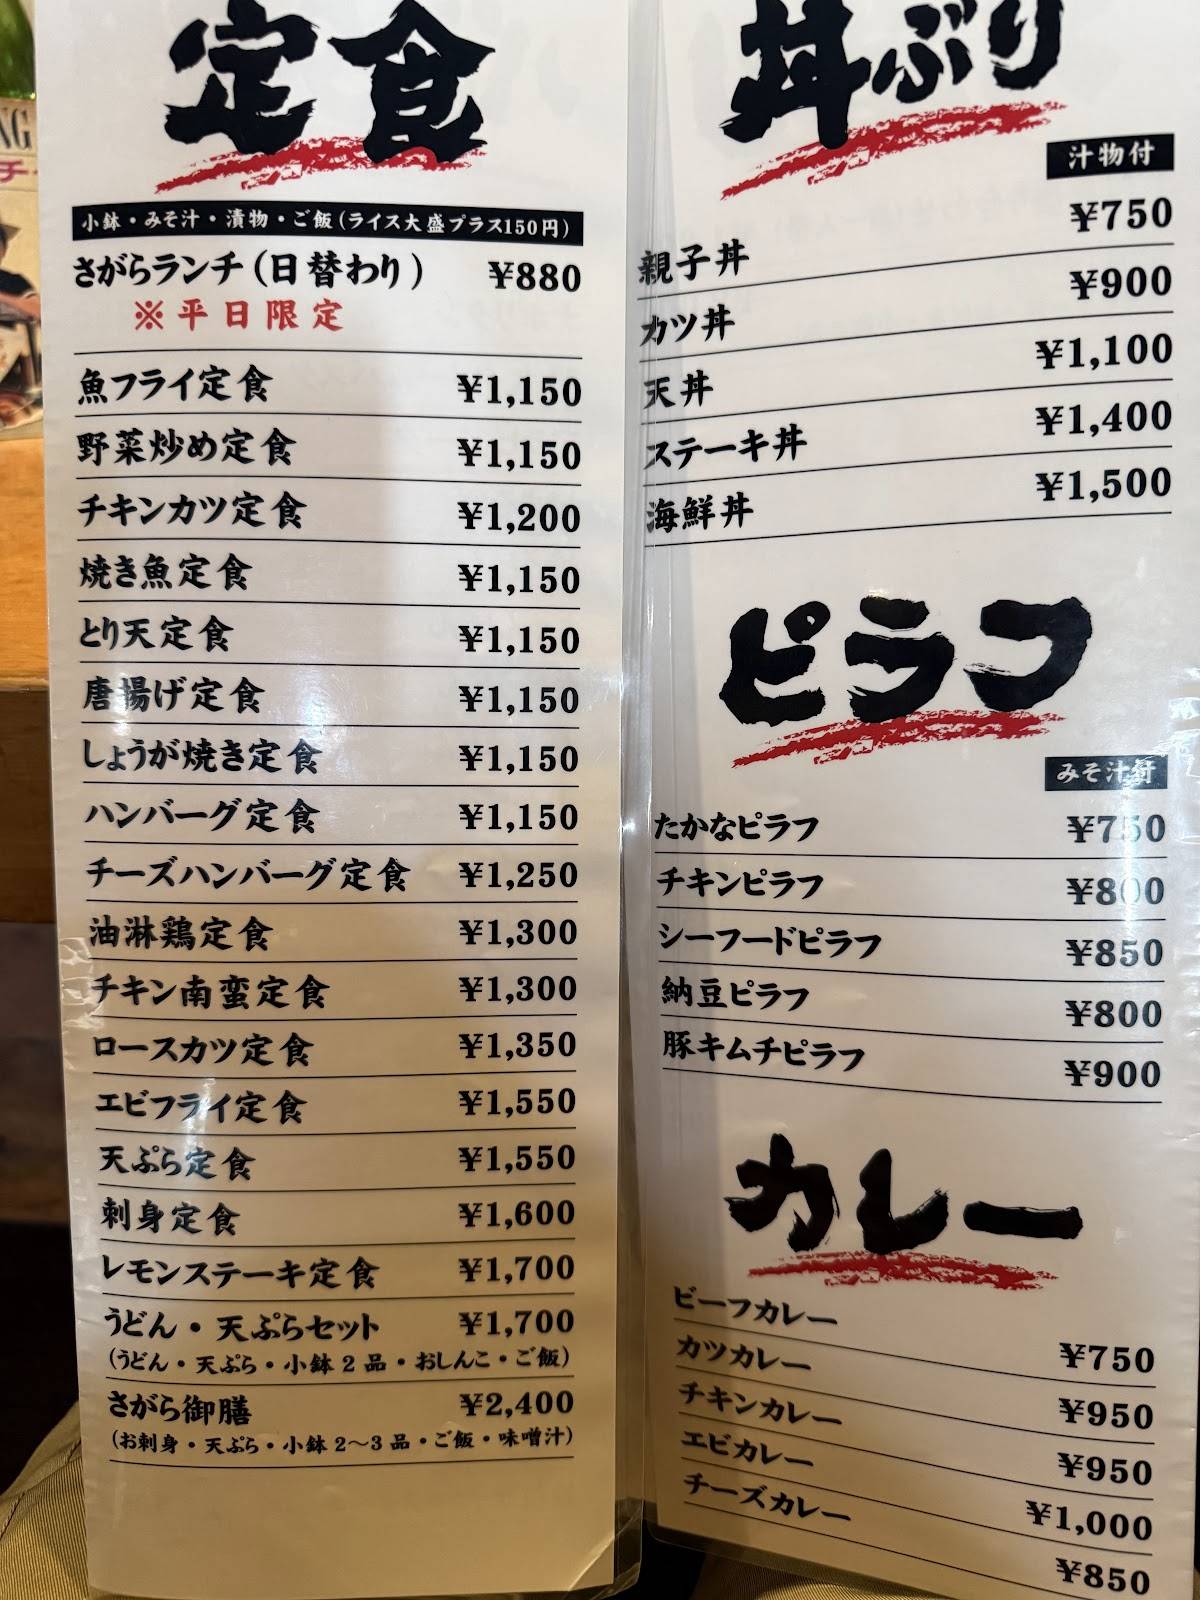 定食
小鉢・みそ汁・漬物・ご飯(ライス大盛プラス150円)
さがらランチ(日替わり) ¥880
※平日限定
魚フライ定食 ¥1,150
野菜炒め定食 ¥1,150
チキンカツ定食 ¥1,200
焼き魚定食 ¥1,150
とり天定食 ¥1,150
唐揚げ定食 ¥1,150
しょうが焼き定食 ¥1,150
ハンバーグ定食 ¥1,150
チーズハンバーグ定食 ¥1,250
油淋鶏定食 ¥1,300
チキン南蛮定食 ¥1,300
ロースカツ定食 ¥1,350
エビフライ定食 ¥1,550
天ぷら定食 ¥1,550
刺身定食 ¥1,600
レモンステーキ定食 ¥1,700
うどん・天ぷらセット ¥1,700
(うどん・天ぷら・小鉢2品・おしんこ・ご飯)
さがら御膳 ¥2,400
(お刺身・天ぷら・小鉢2〜3品・ご飯・味噌汁)
丼ぶり
汁物付
親子丼 ¥750
カツ丼 ¥900
天丼 ¥1,100
ステーキ丼 ¥1,400
海鮮丼 ¥1,500
ピラフ
みそ汁付
たかなピラフ ¥750
チキンピラフ ¥800
シーフードピラフ ¥850
納豆ピラフ ¥800
豚キムチピラフ ¥900
カレー
ビーフカレー ¥750
カツカレー ¥950
チキンカレー ¥950
エビカレー ¥1,000
チーズカレー ¥850